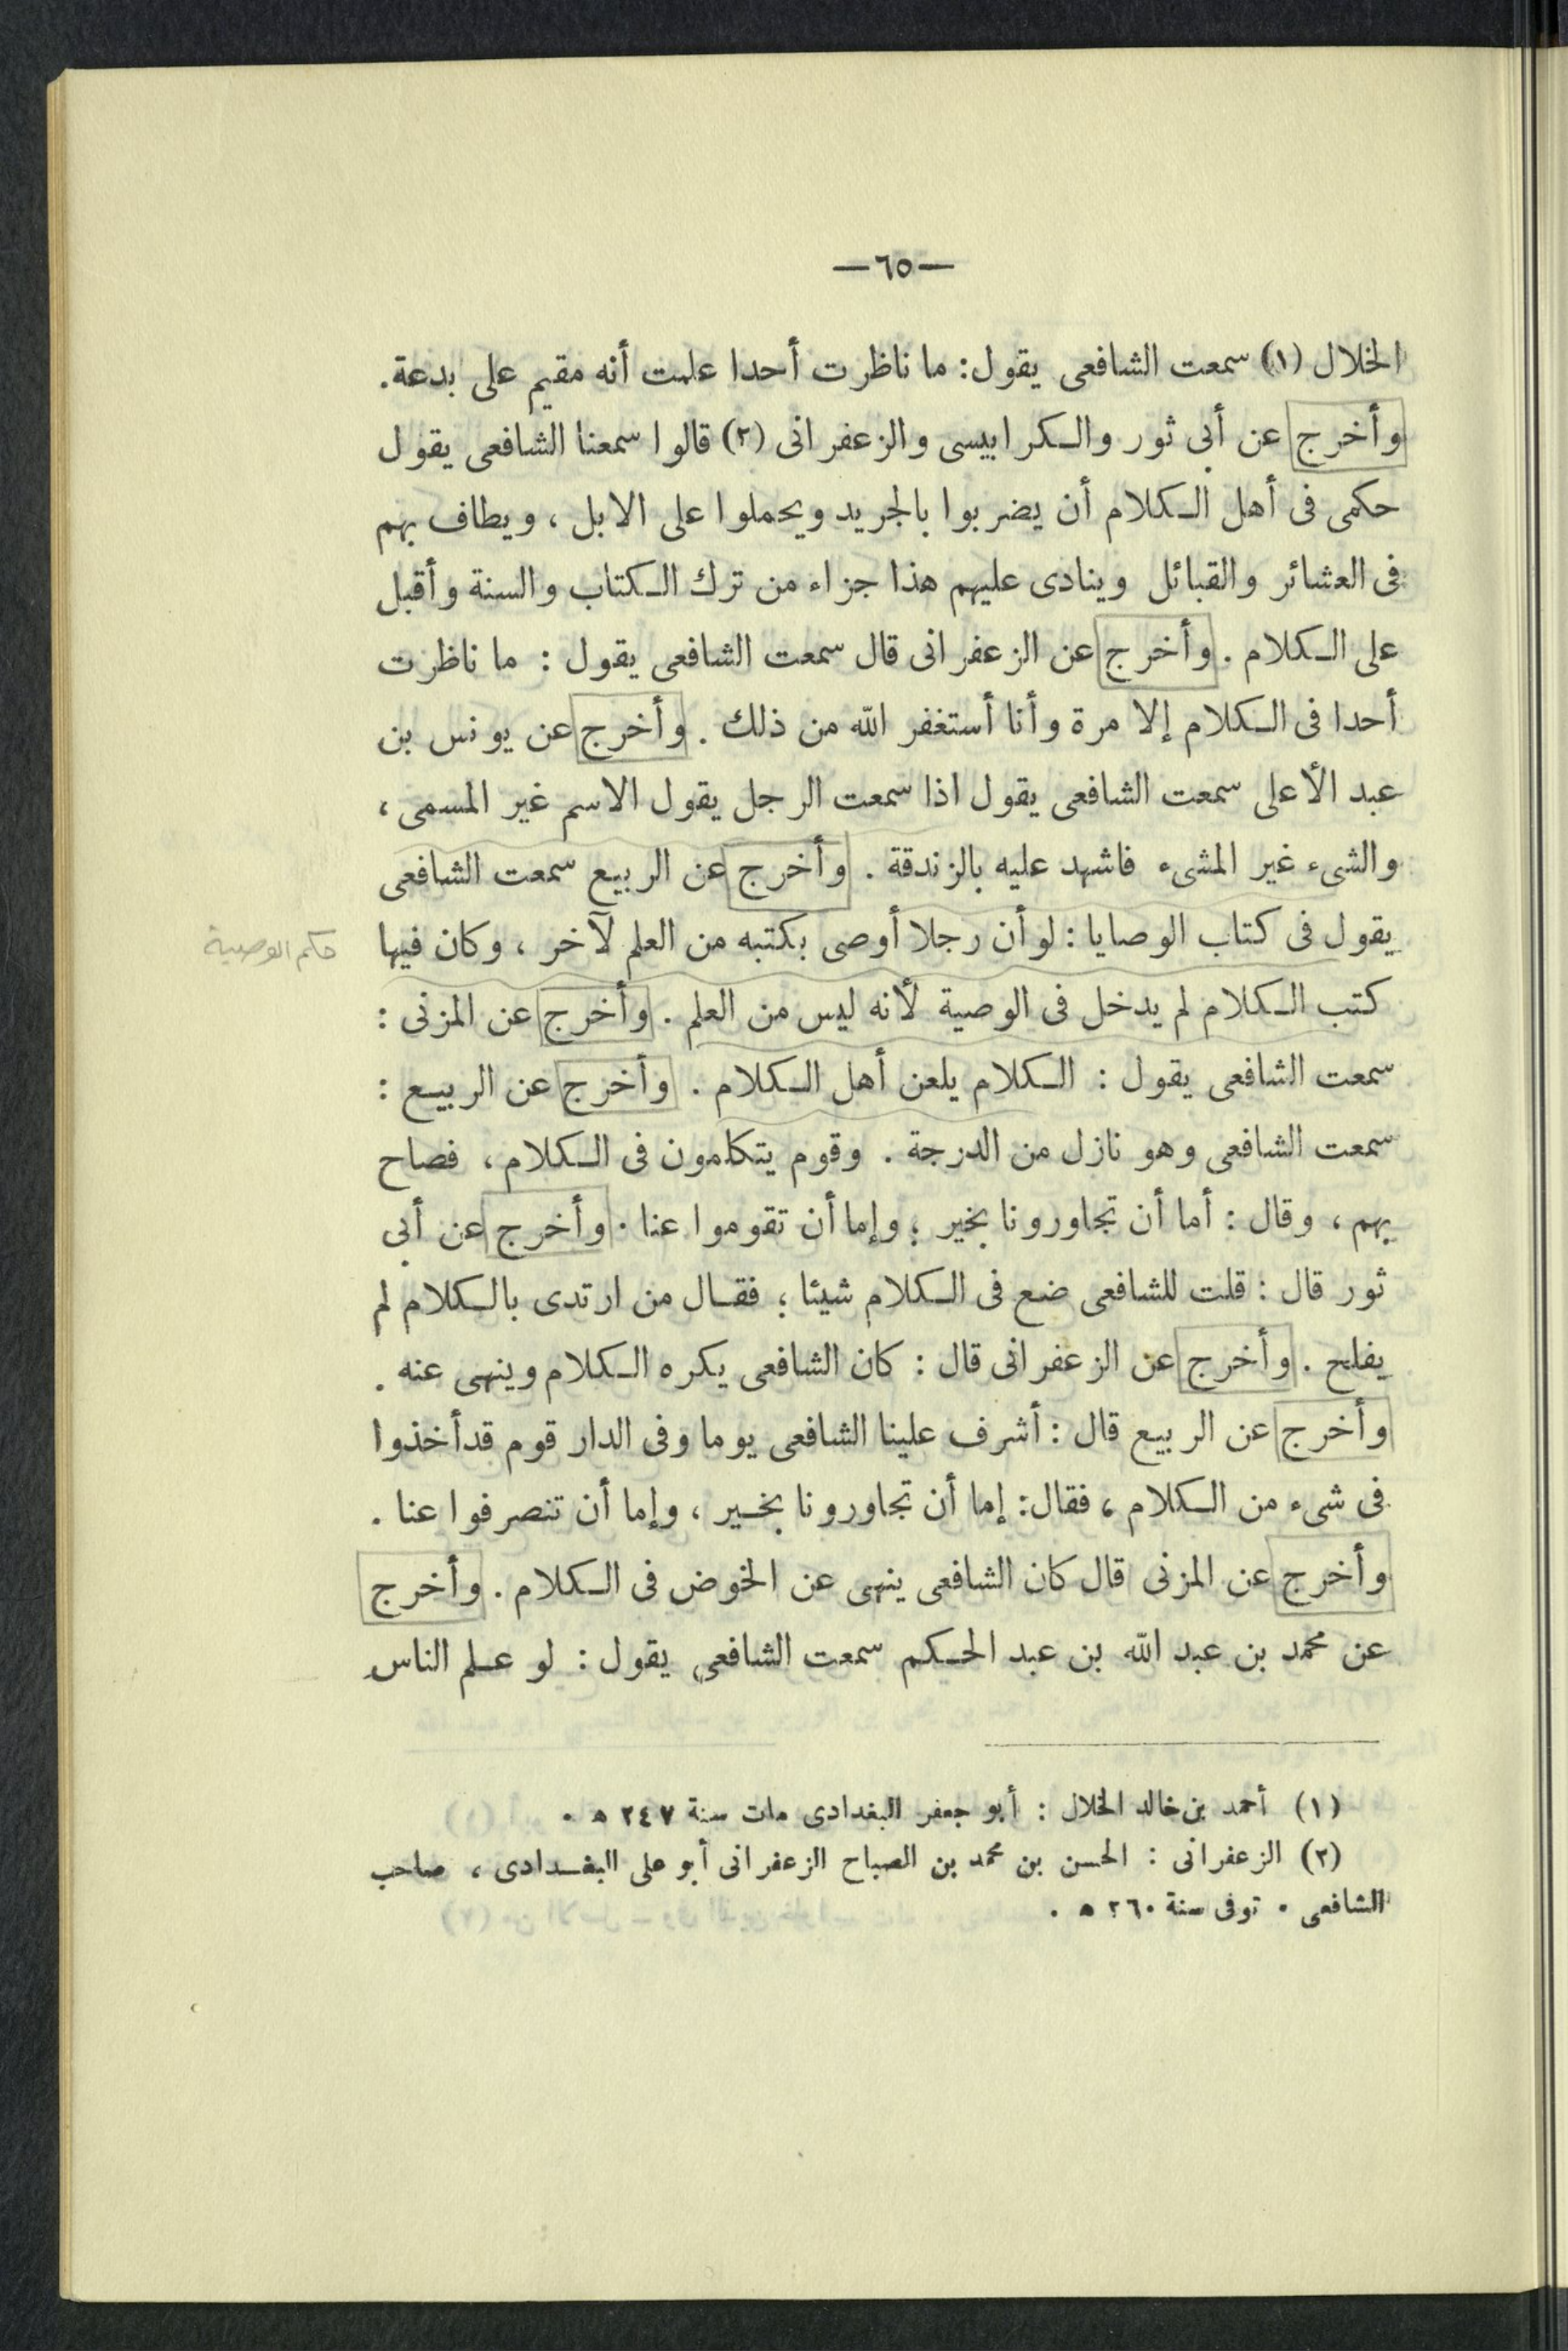 —٦٥—
الخلال (١) سمعت الشافعى يقول: ما ناظرت أحدا علمت أنه مقيم على بدعة.
وأخرج عن أبى ثور والكرابيسى والزعفرانى (٢) قالوا سمعنا الشافعى يقول
حكمى فى أهل الكلام أن يضربوا بالجريد ويحملوا على الابل ، ويطاف بهم
فى العشائر والقبائل وينادى عليهم هذا جزاء من ترك الكتاب والسنة وأقبل
على الكلام . وأخرج عن الزعفرانى قال سمعت الشافعى يقول : ما ناظرت
أحدا فى الكلام إلا مرة وأنا أستغفر الله من ذلك . وأخرج عن يونس بن
عبد الأعلى سمعت الشافعى يقول اذا سمعت الرجل يقول الاسم غير المسمى ،
والشىء غير المشىء فاشهد عليه بالزندقة . وأخرج عن الربيع سمعت الشافعى
يقول فى كتاب الوصايا : لو أن رجلا أوصى بكتبه من العلم لآخر ، وكان فيها
حكم الوصية
كتب الكلام لم يدخل فى الوصية لأنه ليس من العلم . وأخرج عن المزنى :
سمعت الشافعى يقول : الكلام يلعن أهل الكلام . وأخرج عن الربيع :
سمعت الشافعى وهو نازل من الدرجة . وقوم يتكلمون فى الكلام ، فصاح
بهم ، وقال : أما أن تجاورونا بخير ؛ وإما أن تقوموا عنا . وأخرج عن أبى
ثور قال : قلت للشافعى ضع فى الكلام شيئا ؛ فقال من ارتدى بالكلام لم
يفلح . وأخرج عن الزعفرانى قال : كان الشافعى يكره الكلام وينهى عنه .
وأخرج عن الربيع قال : أشرف علينا الشافعى يوما وفى الدار قوم قد أخذوا
فى شىء من الكلام ، فقال: إما أن تجاورونا بخير ، وإما أن تنصرفوا عنا .
وأخرج عن المزنى قال كان الشافعى ينهى عن الخوض فى الكلام . وأخرج
عن محمد بن عبد الله بن عبد الحكم سمعت الشافعى يقول : لو علم الناس
(١) أحمد بن خالد الخلال : أبو جعفر البغدادى مات سنة ٢٤٧ ه .
(٢) الزعفرانى : الحسن بن محمد بن الصباح الزعفرانى أبو على البغدادى ، صاحب
الشافعى . توفى سنة ٢٦٠ ه .